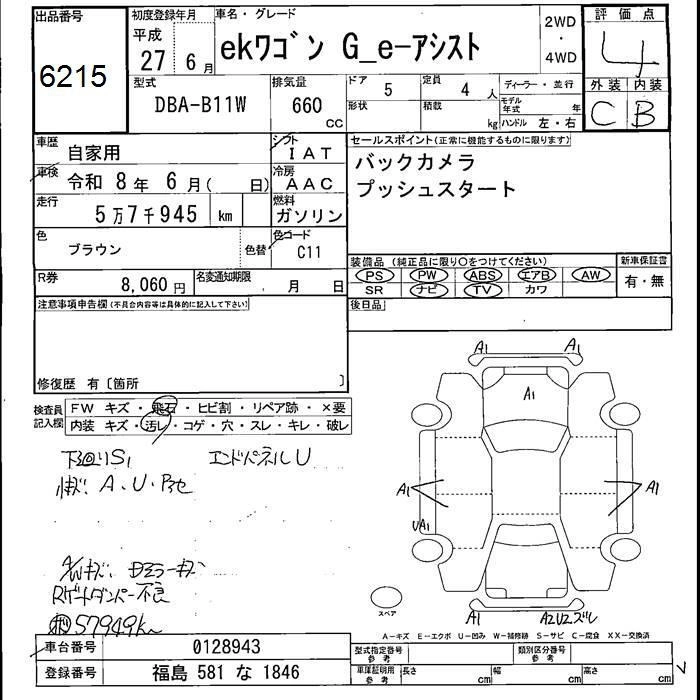 出品番号
6215
初度登録年月
平成
27 6月
車名・グレード
ekワゴン G_e-アシスト
2WD
・
4WD
評価点
4
外装 内装
C B
型式
DBA-B11W
排気量
660
CC
ドア
5
形状
定員
4人
積載
kg
ディーラー・並行
モデル年式
年
ハンドル 左・右
車歴
自家用
シフト
IAT
車検
令和 8年 6月( 日)
冷房
AAC
走行
5万7千945 km
燃料
ガソリン
色
ブラウン
色替
色コード
C11
R券
8,060円
名変通知期限
月 日
セールスポイント(正常に機能するものに限ります)
バックカメラ
プッシュスタート
装備品 (純正品に限り○をつけてください)
PS PW ABS エアB AW
SR ナビ TV カワ
新車保証書
有・無
後日品
注意事項申告欄(不具合内容等は具体的に記入して下さい)
修復歴 有〔箇所 〕
検査員
記入欄
FW キズ・飛石・ヒビ割・リペア跡・×要
内装 キズ・汚レ・コゲ・穴・スレ・キレ・破レ
下廻りS1 エンドパネルU
A・U・
A/Wキズ
Rゲートダンパー不良
57949km
A1 A1
A1
A1 A1
UA1
A1 A2U2ズレ
スペア
A-キズ E-エクボ U-凹み W-補修跡 S-サビ C-腐食 XX-交換済
車台番号
0128943
登録番号
福島 581 な 1846
型式指定番号
参考
類別区分番号
参考
車庫証明用
参考
長さ
cm
幅
cm
高さ
cm